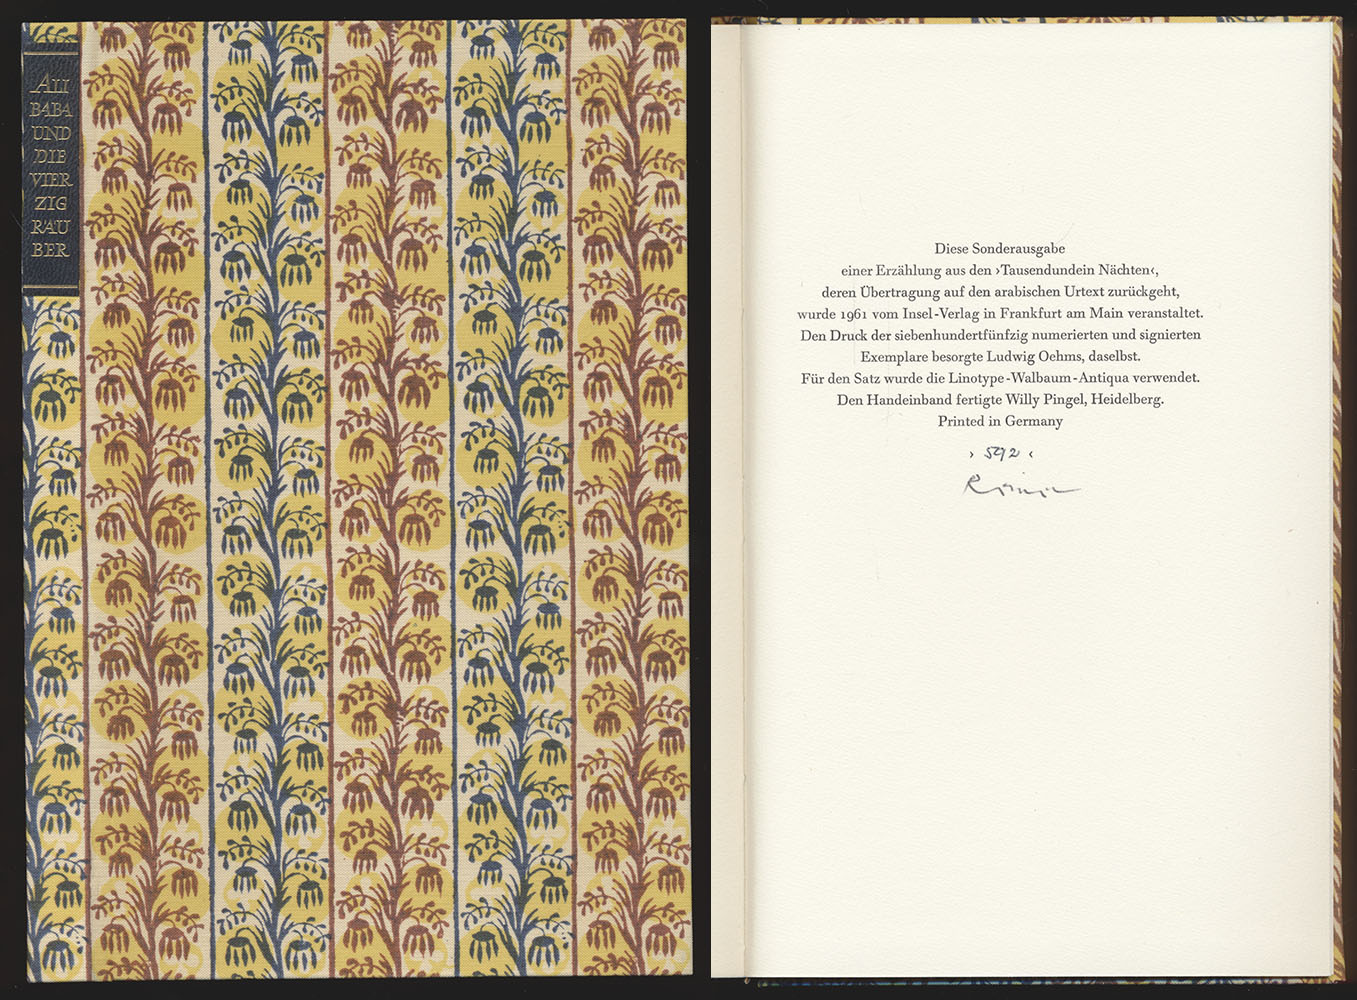 ALI
BABA
UND
DIE
VIER
ZIG
RÄU
BER
Diese Sonderausgabe
einer Erzählung aus den ›Tausendundein Nächten‹,
deren Übertragung auf den arabischen Urtext zurückgeht,
wurde 1961 vom Insel-Verlag in Frankfurt am Main veranstaltet.
Den Druck der siebenhundertfünfzig numerierten und signierten
Exemplare besorgte Ludwig Oehms, daselbst.
Für den Satz wurde die Linotype-Walbaum-Antiqua verwendet.
Den Handeinband fertigte Willy Pingel, Heidelberg.
Printed in Germany
› 592 ‹